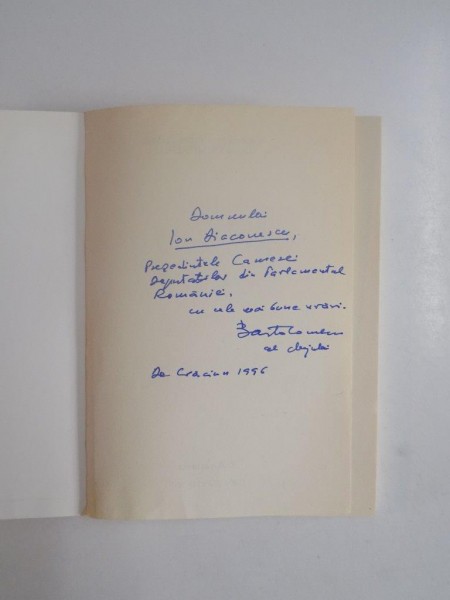 Domnului
Ion Diaconescu,
Președintele Camerei
Deputaților din Parlamentul
României,
cu cele mai bune urări.
Bartolomeu
al Clujului
De Crăciun 1996